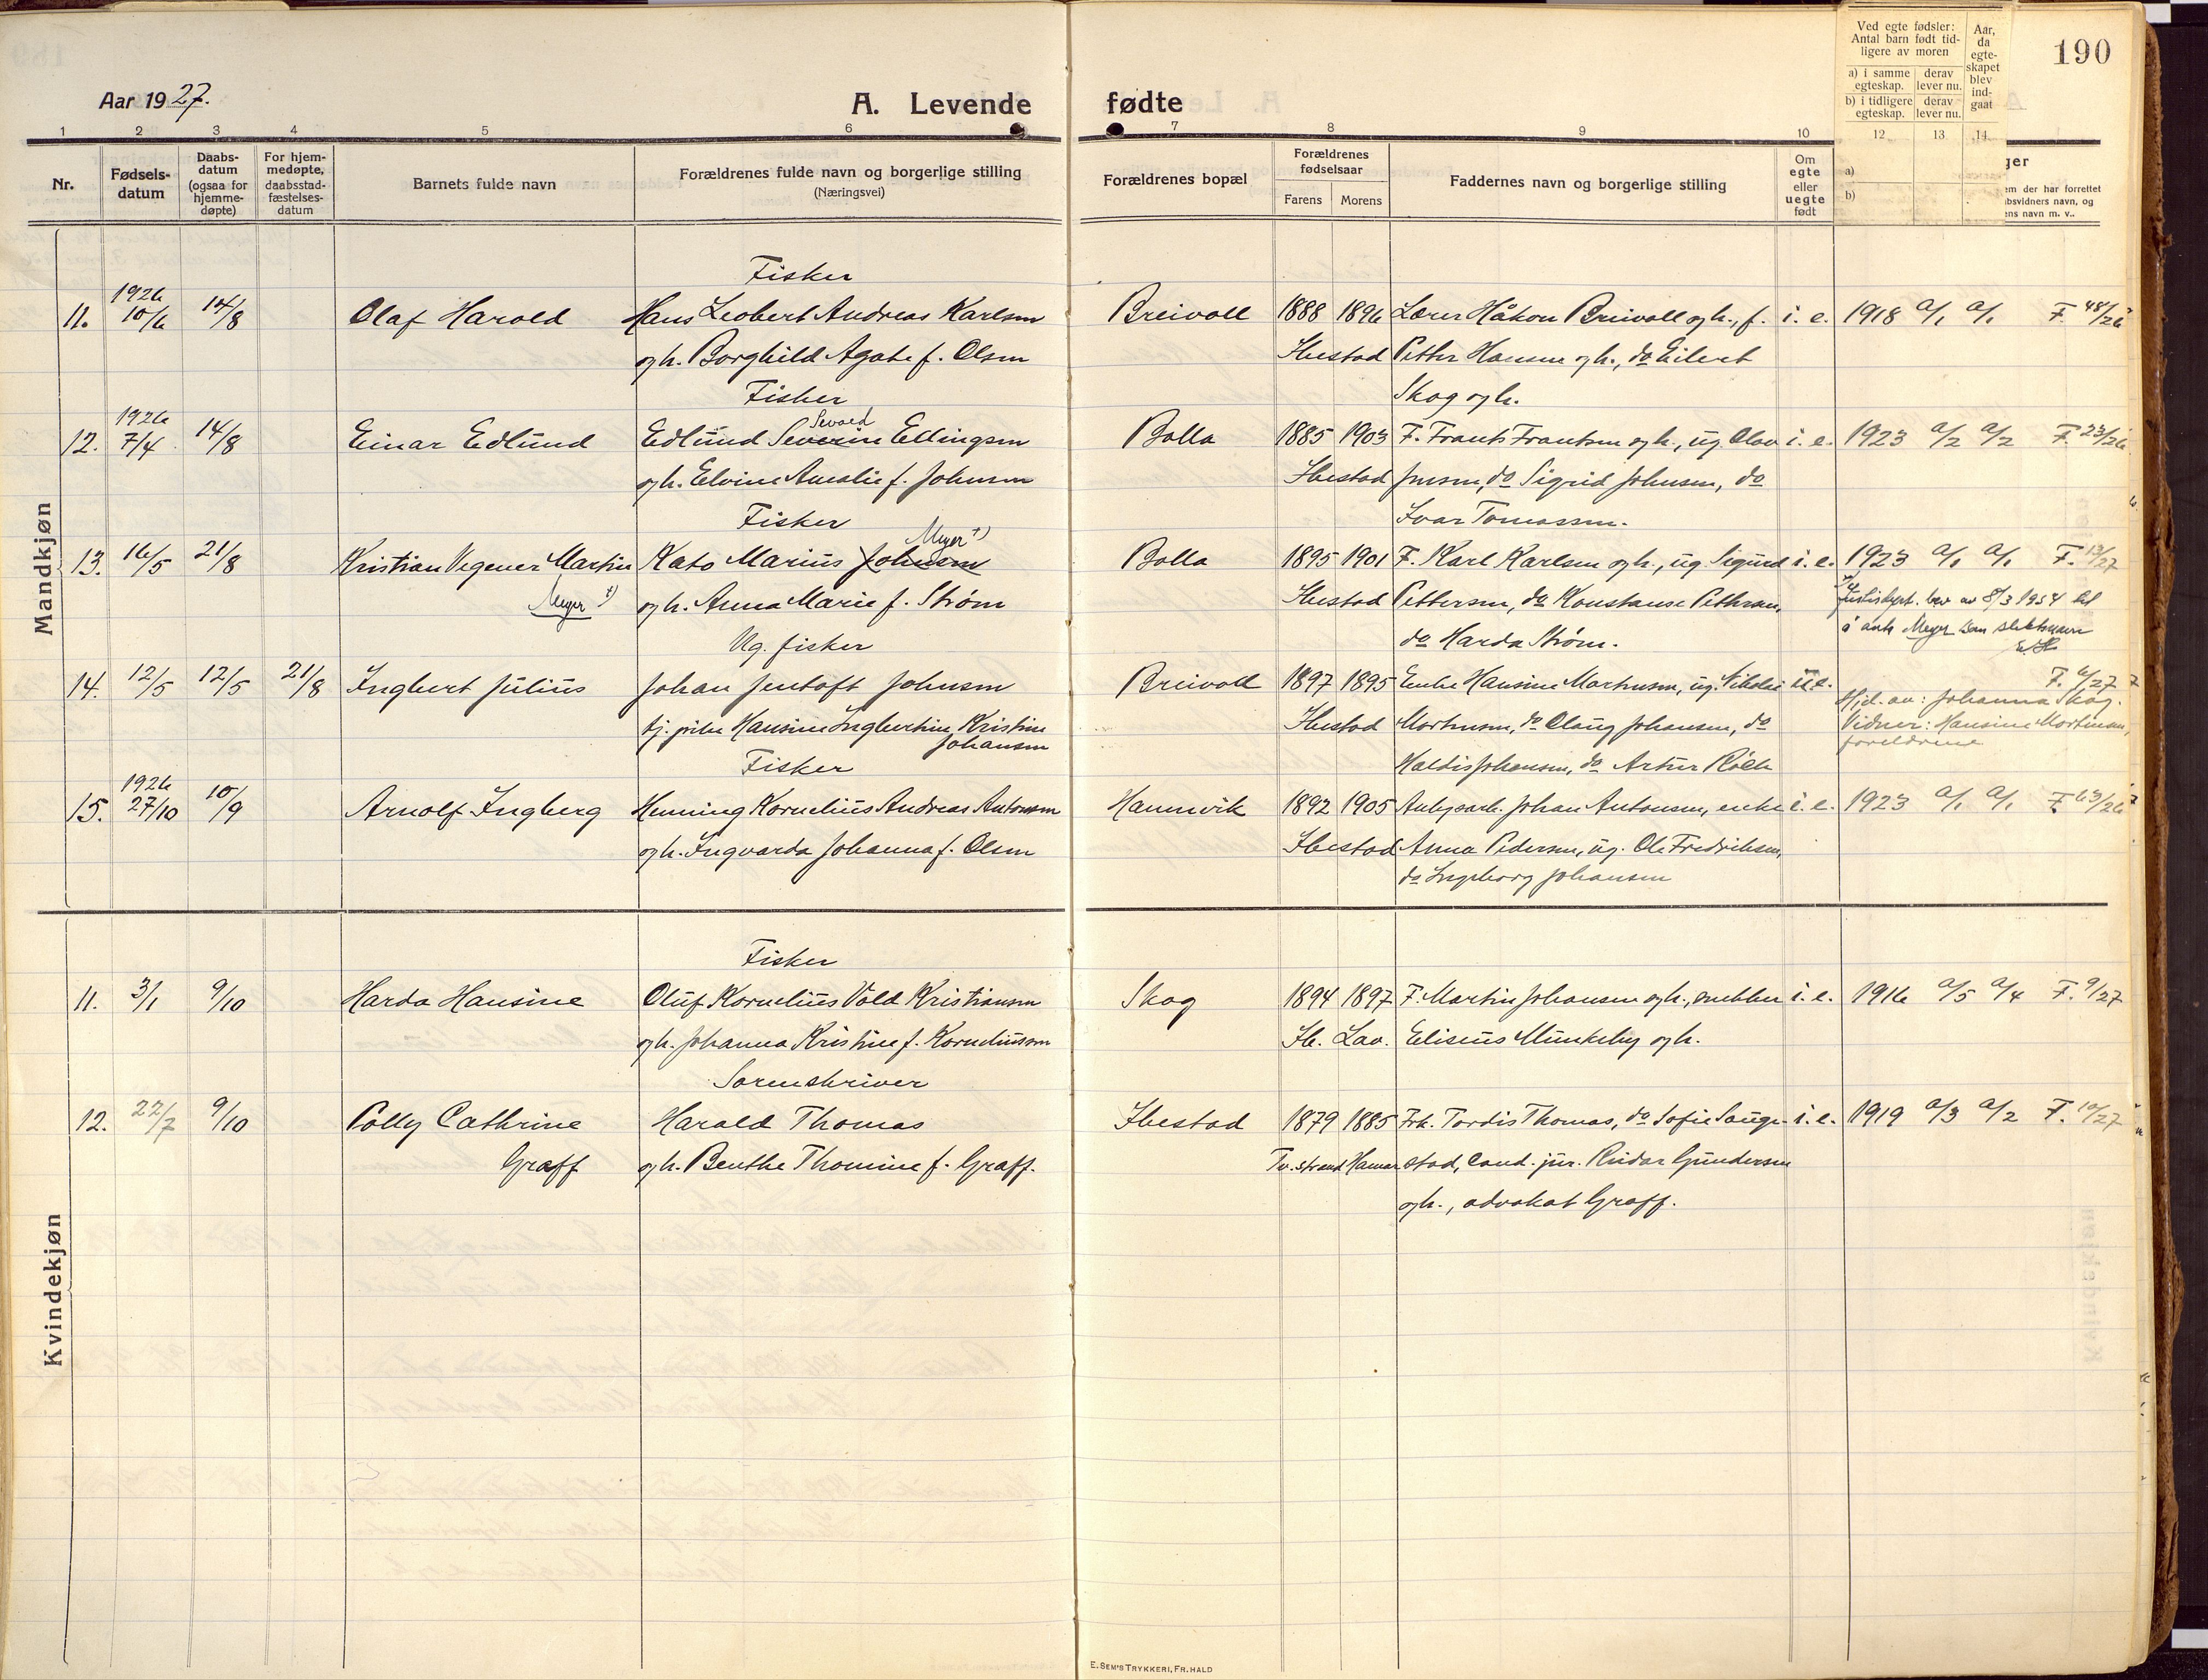 190
Aar 1927.
A. Levende fødte
1 2 3 4 5 6 7 8 9 10
Nr.
Fødsels-
datum
Daabs-
datum
(ogsaa for
hjemme-
døpte)
For hjem-
medøpte,
daabsstad-
fæstelses-
datum
Barnets fulde navn
Forældrenes fulde navn og borgerlige stilling
(Næringsvei)
Forældrenes bopæl
Forældrenes
fødselsaar
Farens Morens
Faddernes navn og borgerlige stilling
Om
egte
eller
uegte
født
Ved egte fødsler:
Antal barn født tid-
ligere av moren
a) i samme
egteskap.
derav
lever nu.
b) i tidligere
egteskap.
derav
lever nu.
Aar,
da
egte-
skapet
blev
ind-
gaat
12 13 14
a)
b)
ger
em der har forrettet
bsvidners navn, og
ens navn m. v..
Mandkjøn
Fisker
1926
11. 10/6 14/8 Olaf Harald Hans Leobert Andreas Karlsen Breivoll 1888 1896 Lærer Håkon Breivoll og h., f. i. e. 1918 a/1 a/1 F. 48/26
og h. Borghild Agate f. Olsen Ibestad Petter Hansen og h., do Eilert
Fisker Skog og h.
1926 Sevald
12. 7/4 14/8 Einar Edlund Edlund Severin Ellingsen Bolla 1885 1903 F. Frants Frantsen og h., ug. Olav i. e. 1923 a/2 a/2 F. 23/26
og h. Elvine Amalie f. Johnsen Ibestad Jensen, do Sigrid Johnsen, do
Fisker Ivar Tomassen.
Meyer +)
13. 16/5 21/8 Kristian Vegener Martin Kato Marius Johnsen Bolla 1895 1901 F. Karl Karlsen og h., ug. Sigurd i. e. 1923 a/1 a/1 F. 13/27
Meyer +) og h. Anna Marie f. Strøm Ibestad Pettersen, do Konstanse Pettersen,
do Harda Strøm.
Justisdept. bev av 8/3 1954 til
å anta Meyer som slektsnavn
Ug. fisker
14. 12/5 12/5 21/8 Ingbert Julius Johan Jentoft Johnsen Breivoll 1897 1895 Enke Hansine Martinsen, ug. Nikolai u. e. F. 6/27
tj. pike Hansine Ingbertine Kristine Johansen Ibestad Mortensen, do Olaug Johansen, do
Haldis Johansen, do Artur
Hjd. av: Johanna Skog.
Vidner: Hansine Mortensen,
foreldrene
Fisker
1926
15. 27/10 10/9 Arnolf Ingberg Henning Kornelius Andreas Antonsen Hamnvik 1892 1905 Anlegsarb. Johan Antonsen, enke i. e. 1923 a/1 a/1 F. 63/26
og h. Ingvarda Johanna f. Olsen Ibestad Anna Pedersen, ug. Ole Fredriksen,
do Ingeborg Johansen
Kvindekjøn
Fisker
11. 3/1 9/10 Harda Hansine Oluf Kornelius Vold Kristiansen Skog 1894 1897 F. Martin Johansen og h., snekker i. e. 1916 a/5 a/4 F. 9/27
og h. Johanna Kristine f. Korneliussen Ib. Lav. Eliseus Munkeby og h.
Sorenskriver
12. 22/7 9/10 Polly Cathrine Harald Thomas Ibestad 1879 1885 Frk. Tordis Thomas, do Sofie Sauge- i. e. 1919 a/3 a/2 F. 10/27
Graff og h. Benthe Thomine f. Graff. Tv.strand Hamar stad, cand. jur. Reidar Gundersen
og h., advokat Graff.
E. SEM'S TRYKKERI, FR. HALD